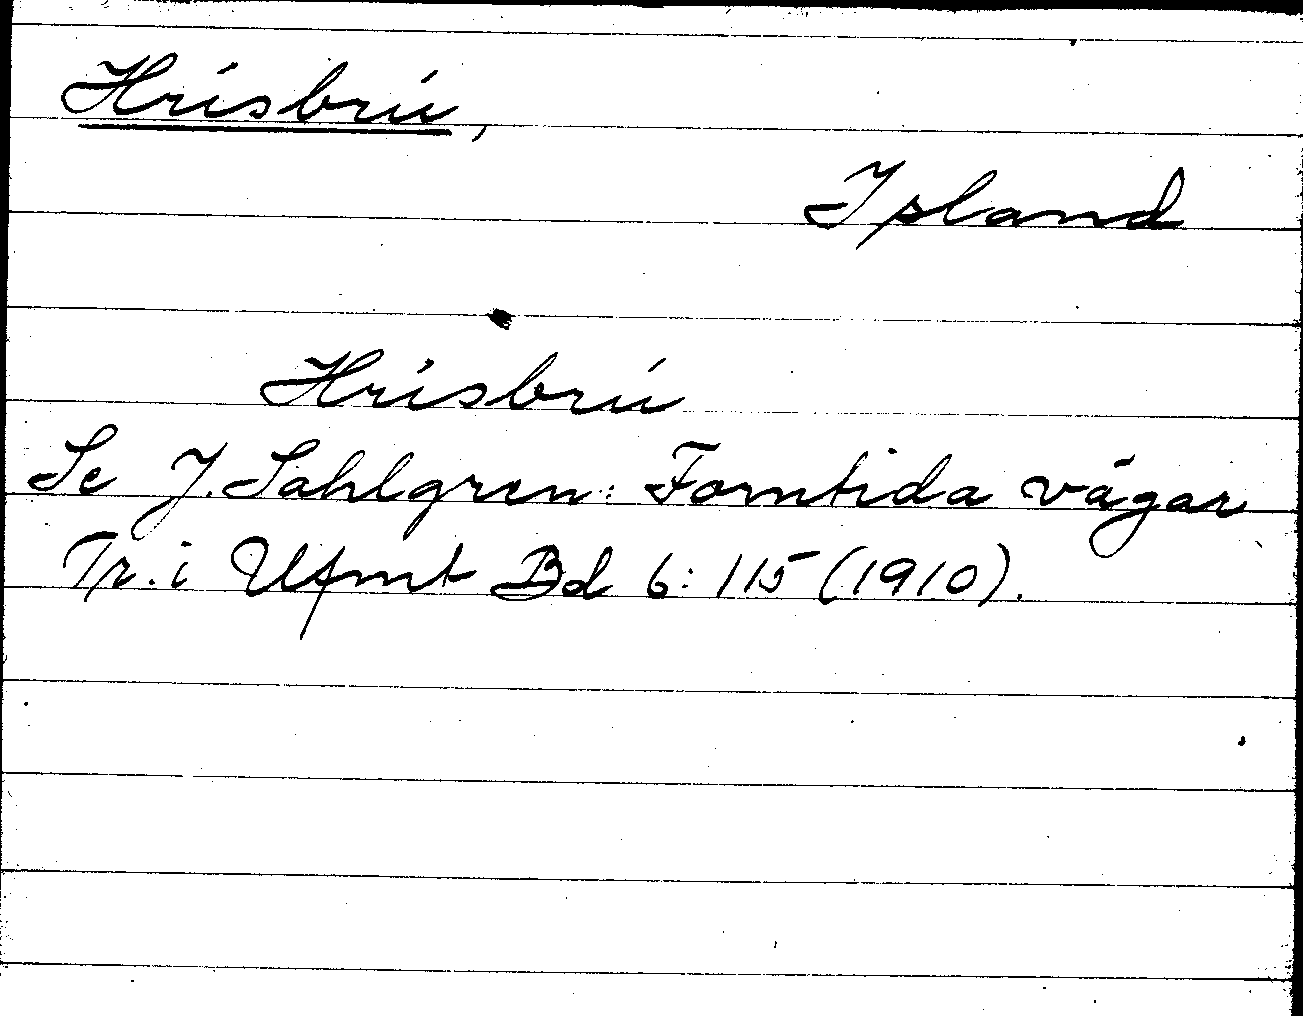 Hrísbrú,
Island
Hrísbrú
Se J. Sahlgren: Forntida vägar
Tr. i Ufmt Bd 6:115 (1910).